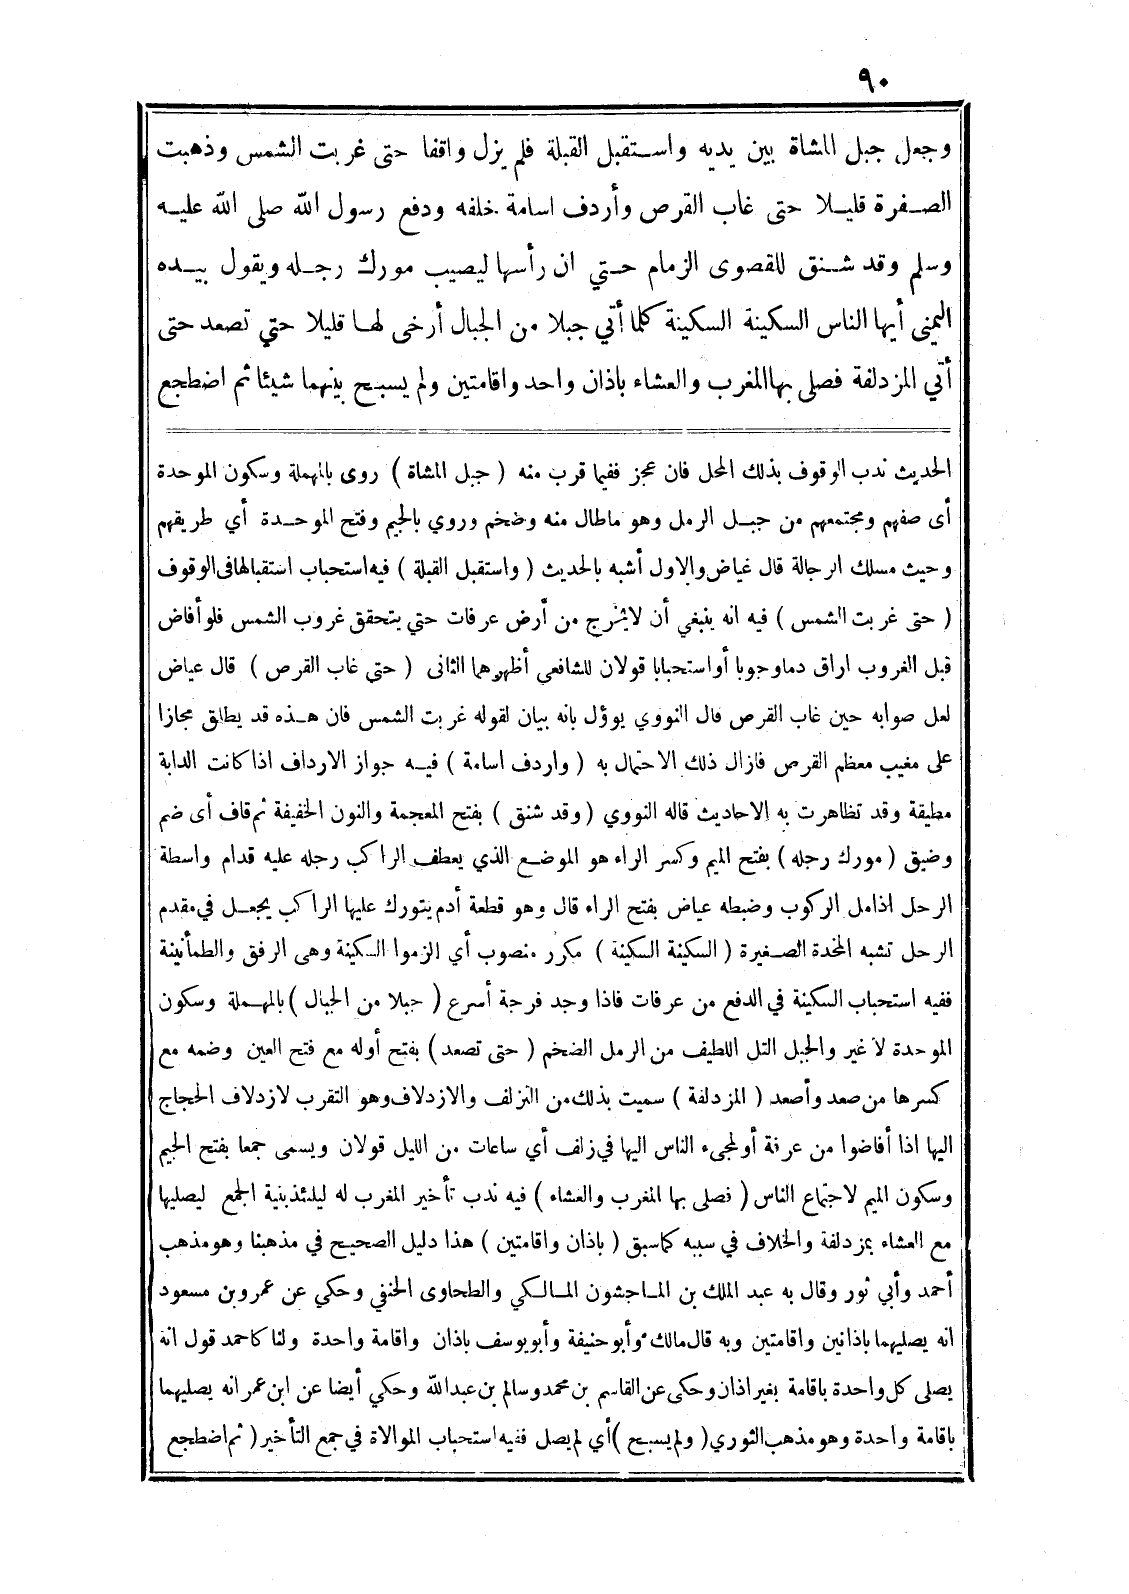 ٩٠
وجعل جبل المشاة بين يديه واستقبل القبلة فلم يزل واقفا حتى غربت الشمس وذهبت
الصفرة قليلا حتى غاب القرص وأردف اسامة خلفه ودفع رسول الله صلى الله عليه
وسلم وقد شنق للقصوى الزمام حتي ان رأسها ليصيب مورك رجله ويقول بيده
اليمنى أيها الناس السكينة السكينة كلما أتي جبلا من الجبال أرخى لها قليلا حتي تصعد حتى
أتي المزدلفة فصلى بها المغرب والعشاء باذان واحد واقامتين ولم يسبح بينهما شيئا ثم اضطجع
الحديث ندب الوقوف بذلك المحل فان عجز ففيما قرب منه ( جبل المشاة ) روى بالمهملة وسكون الموحدة
أى صفهم ومجتمعهم من جبل الرمل وهو ماطال منه وضخم وروي بالجيم وفتح الموحدة أي طريقهم
وحيث مسلك الرجالة قال غياض والاول أشبه بالحديث ( واستقبل القبلة ) فيه استحباب استقبالها فى الوقوف
( حتى غربت الشمس ) فيه انه ينبغي أن لايخرج من أرض عرفات حتي يتحقق غروب الشمس فلو أفاض
قبل الغروب اراق دما وجوبا أو استحبابا قولان للشافعي أظهرهما الثانى ( حتي غاب القرص ) قال عياض
لعل صوابه حين غاب القرص قال النووي يوؤل بانه بيان لقوله غربت الشمس فان هذه قد يطلق مجازا
على مغيب معظم القرص فازال ذلك الاحتمال به ( واردف اسامة ) فيه جواز الارداف اذا كانت الدابة
مطيقة وقد تظاهرت به الاحاديث قاله النووي ( وقد شنق ) بفتح المعجمة والنون الخفيفة ثم قاف أى ضم
وضيق ( مورك رجله ) بفتح الميم وكسر الراء هو الموضع الذي يعطف الراكب رجله عليه قدام واسطة
الرحل اذا مل الركوب وضبطه عياض بفتح الراء قال وهو قطعة أدم يتورك عليها الراكب يجعل في مقدم
الرحل تشبه المخدة الصغيرة ( السكينة السكينة ) مكرر منصوب أي الزموا السكينة وهى الرفق والطمأنينة
ففيه استحباب السكينة في الدفع من عرفات فاذا وجد فرجة أسرع ( جبلا من الجبال ) بالمهملة وسكون
الموحدة لا غير والجبل التل اللطيف من الرمل الضخم ( حتى تصعد ) بفتح أوله مع فتح العين وضمه مع
كسرها من صعد وأصعد ( المزدلفة ) سميت بذلك من التزلف والازدلاف وهو التقرب لازدلاف الحجاج
اليها اذا أفاضوا من عرفة أو لمجيء الناس اليها في زلف أي ساعات من الليل قولان ويسمى جمعا بفتح الجيم
وسكون الميم لاجتماع الناس ( فصلى بها المغرب والعشاء ) فيه ندب تأخير المغرب له ليلئذ بنية الجمع ليصليها
مع العشاء بمزدلفة والخلاف في سببه كما سبق ( باذان واقامتين ) هذا دليل الصحيح في مذهبنا وهو مذهب
أحمد وأبي ثور وقال به عبد الملك بن الماجشون المالكي والطحاوى الحنفي وحكي عن عمر وبن مسعود
انه يصليهما باذانين واقامتين وبه قال مالك وأبو حنيفة وأبو يوسف باذان واقامة واحدة ولنا كاحمد قول انه
يصلى كل واحدة باقامة بغير اذان وحكى عن القاسم بن محمد وسالم بن عبد الله وحكي أيضا عن ابن عمر انه يصليهما
باقامة واحدة وهو مذهب الثوري ( ولم يسبح ) أي لم يصل ففيه استحباب الموالاة في جمع التأخير ( ثم اضطجع